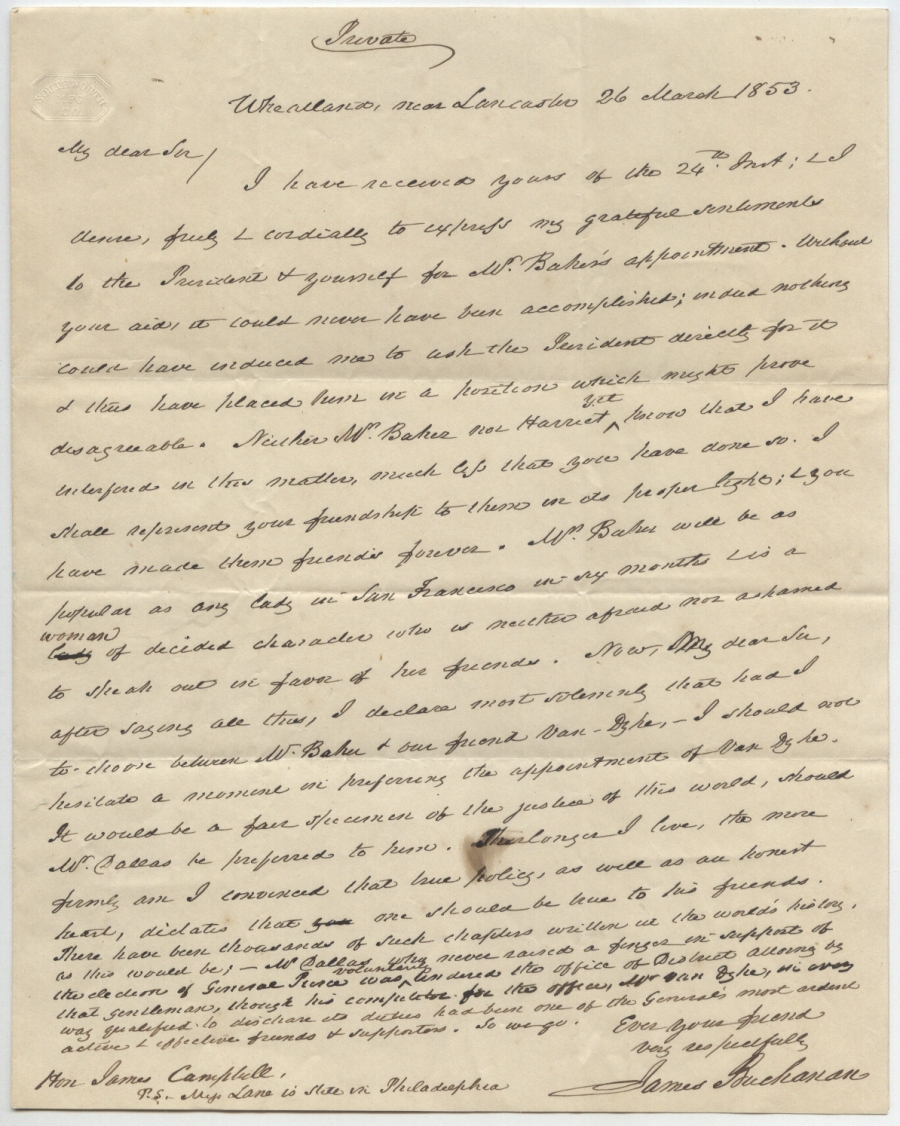 Private
Wheatland, near Lancaster 26 March 1853.
My dear Sir/
I have received yours of the 24th. Inst; & I
desire, truly & cordially to express my grateful sentiments
to the President & yourself for Mr. Baker's appointment. Without
your aid, it could never have been accomplished; indeed nothing
could have induced me to ask the President directly for it
& thus have placed him in a position which might prove
disagreeable. Neither Mr. Baker nor Harriet yet know that I have
interfered in this matter, much less that you have done so. I
shall represent your friendship to them in its proper light; & you
have made them friends forever. Mrs. Baker will be as
popular as any lady in San Francisco in six months & is a
lady woman of decided character who is neither afraid nor ashamed
to speak out in favor of her friends. Now, My dear Sir,
after saying all this, I declare most solemnly that had I
to choose between Mr. Baker & our friend Van-Dyke, – I should not
hesitate a moment in preferring the appointment of Van Dyke.
It would be a fair specimen of the justice of this world, should
Mr. Dallas be preferred to him. The longer I live, the more
firmly am I convinced that true policy, as well as an honest
heart, dictates that one should be true to his friends.
There have been thousands of such chapters written in the world's history,
as this would be; – Mr Dallas who never raised a finger in support of
the election of General Pierce was voluntarily tendered the office of District Attorney by
that gentleman, though his competitor for the office, Mr Van Dyke, in every
way qualified to discharge its duties had been one of the General's most ardent
active & effective friends & supporters. So we go.
Ever your friend
very respectfully
James Buchanan
Hon James Campbell.
P.S. Miss Lane is still in Philadelphia